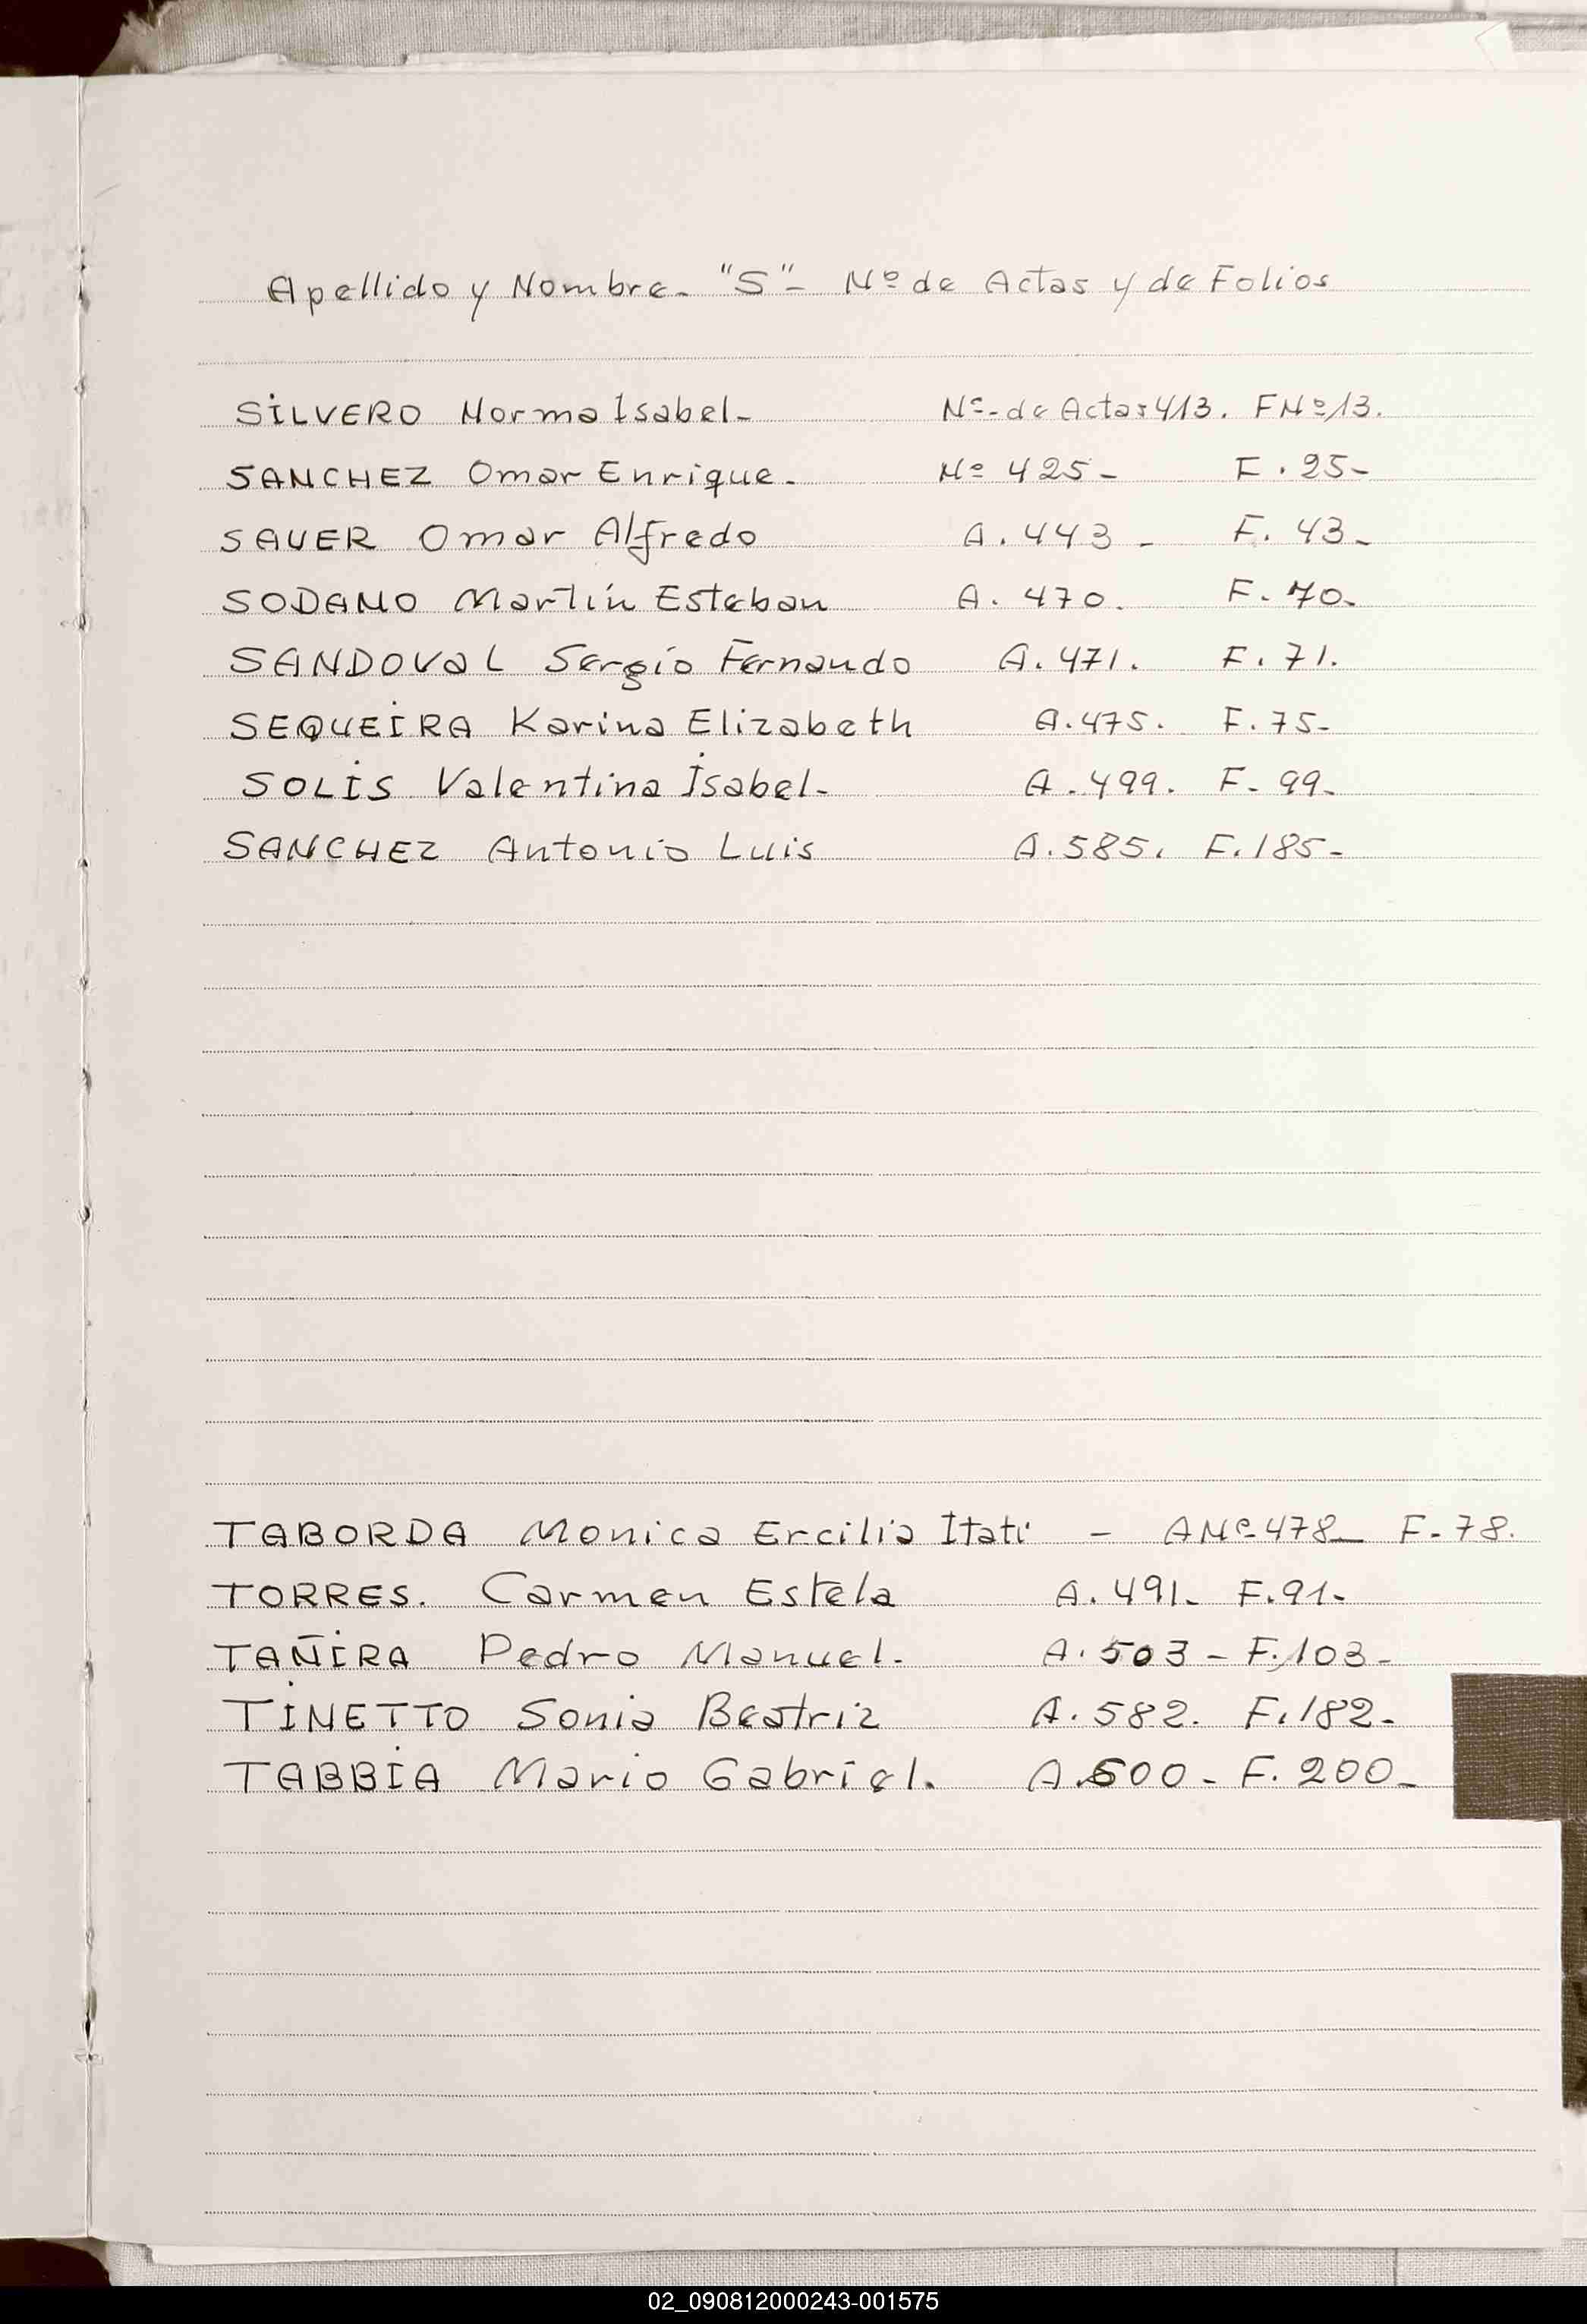 Apellido y Nombre- "S"- Nº de Actas y de Folios
SILVERO Norma Isabel- Nº-de Actas 413. F Nº 13.
SANCHEZ Omar Enrique. Nº 425- F. 25-
SAUER Omar Alfredo A. 443- F. 43-
SODANO Martín Esteban A. 470. F. 70-
SANDOVAL Sergio Fernando A. 471. F. 71.
SEQUEIRA Karina Elizabeth A. 475. F. 75-
SOLIS Valentina Isabel- A. 499. F- 99-
SANCHEZ Antonio Luis A. 585. F. 185-
TABORDA Monica Ercilia Itatí - A Nº 478- F-78.
TORRES. Carmen Estela A. 491- F. 91-
TAÑIRA Pedro Manuel. A. 503- F. 103-
TINETTO Sonia Beatriz A. 582. F. 182-
TABBIA Mario Gabriel. A. 600- F. 200-
02_090812000243-001575